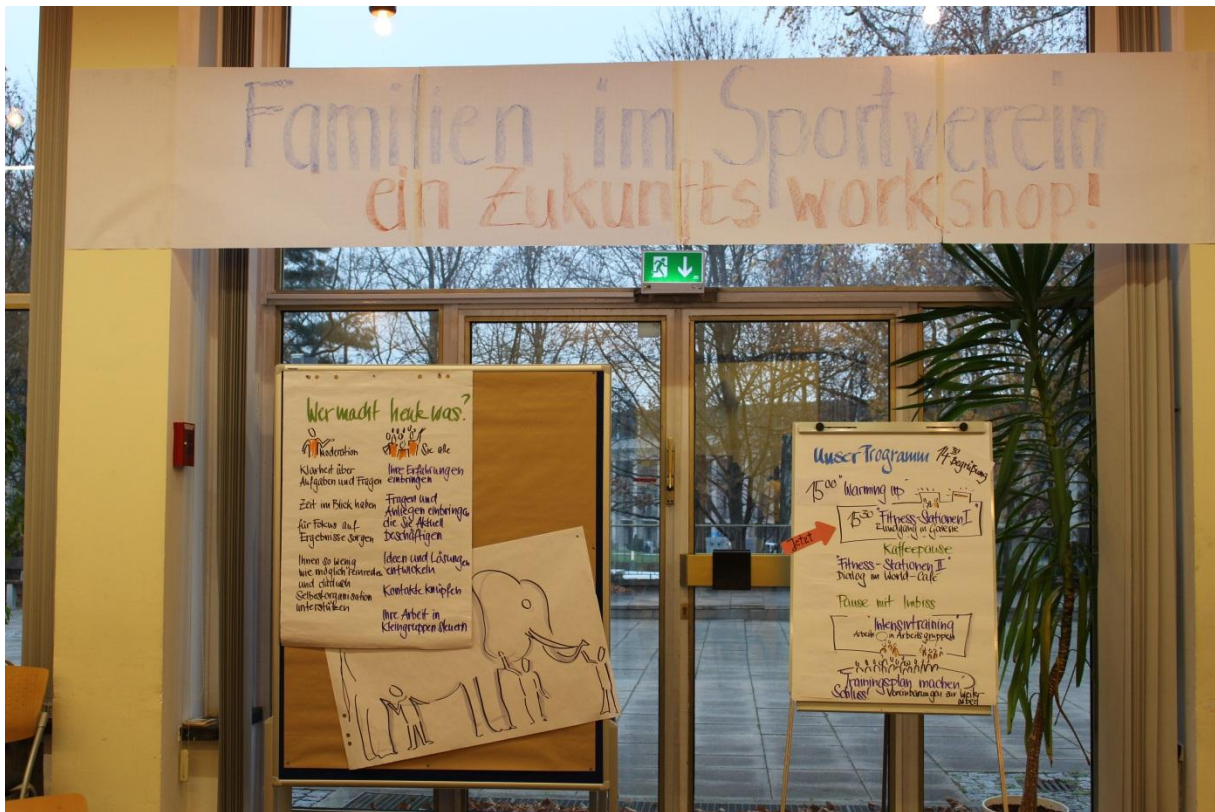 Familien im Sportverein
ein Zukunftsworkshop!
Wer macht heute was?
Moderation
Klarheit über
Aufgaben und Fragen
Zeit im Blick haben
für Fokus auf
Ergebnisse sorgen
Ihnen so wenig
wie möglich reinreden
und dadurch
Selbstorganisation
unterstützen
Sie alle
Ihre Erfahrungen
einbringen
Fragen und
Anliegen einbringen,
die Sie Aktuell
beschäftigen
Ideen und Lösungen
entwickeln
Kontakte knüpfen
Ihre Arbeit in
Kleingruppen steuern
Unser Programm
14 30 Begrüßung
15 00 "Warming up"
Jetzt
15 30 "Fitness-Stationen I"
Rundgang in Galerie
Kaffeepause
"Fitness-Stationen II"
Dialog im World-Café
Pause mit Imbiss
"Intensivtraining"
Arbeit in Arbeitsgruppen
"Trainingsplan machen"
Schluss! Vereinbarungen zur Weiter
arbeit